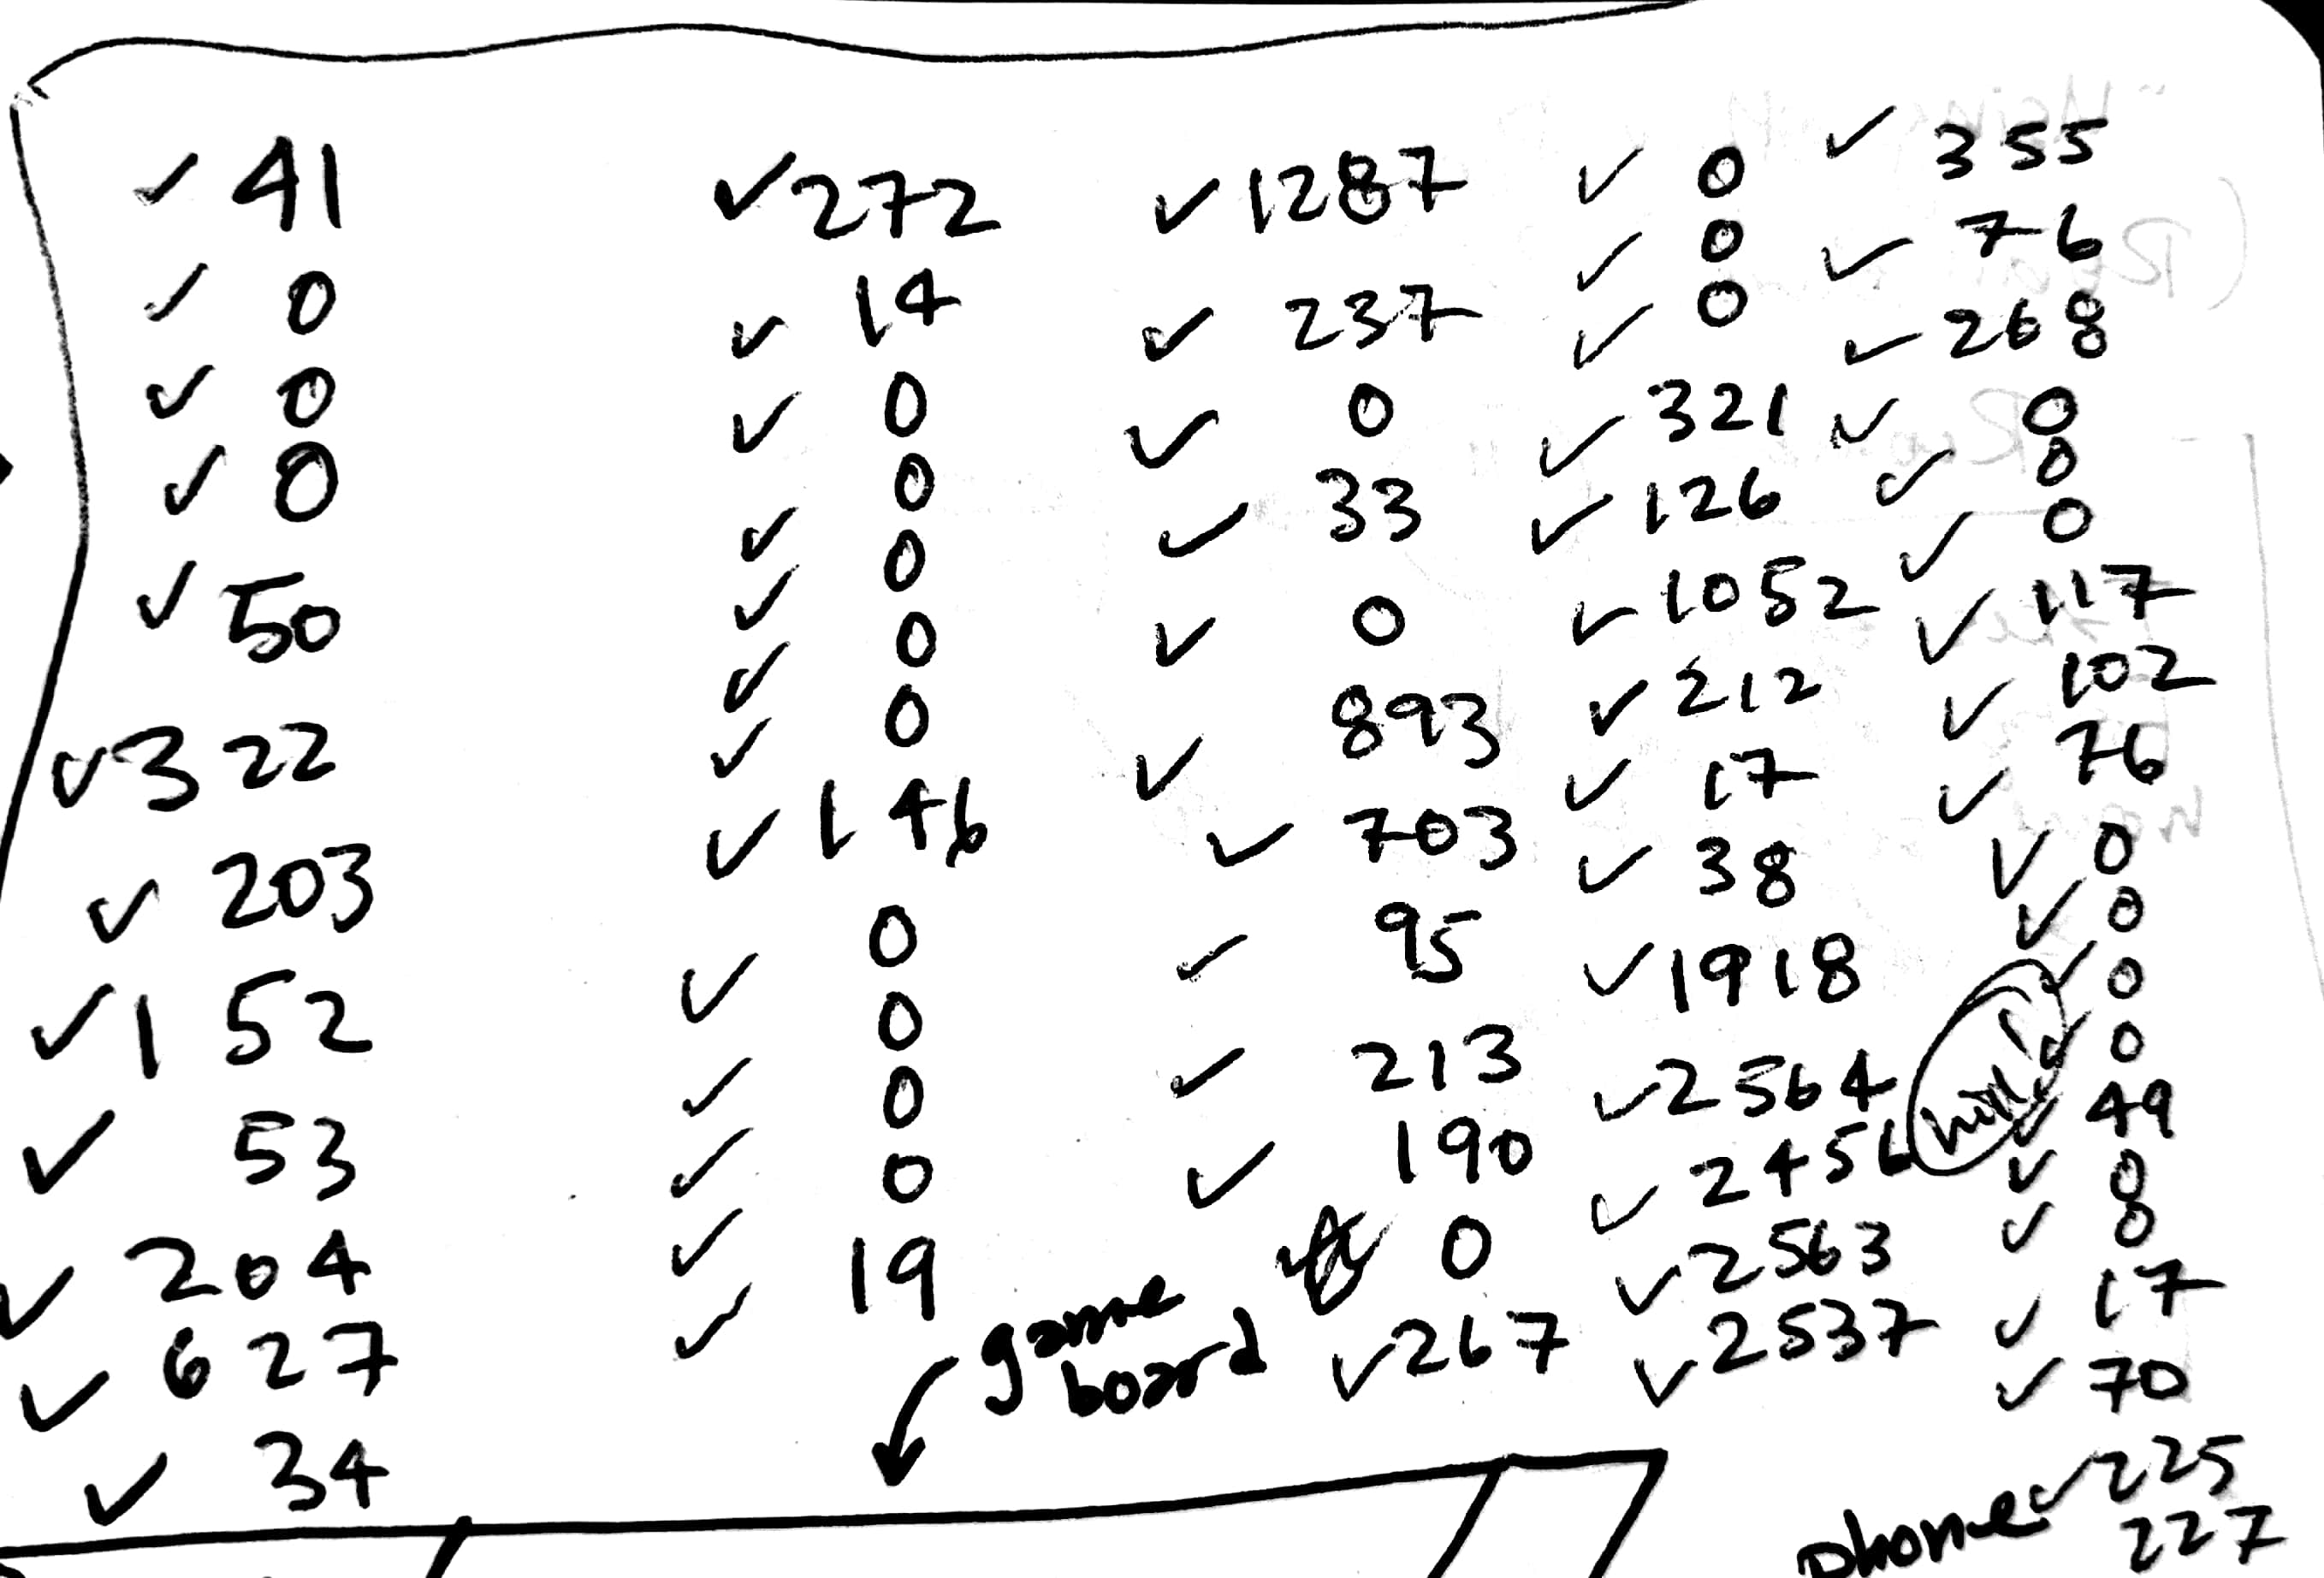 ✓ 41
✓ 0
✓ 0
✓ 0
✓ 50
✓ 322
✓ 203
✓ 152
✓ 53
✓ 204
✓ 627
✓ 34
✓ 272
✓ 14
✓ 0
✓ 0
✓ 0
✓ 0
✓ 0
✓ 146
✓ 0
✓ 0
✓ 0
✓ 0
✓ 19
game
board
✓ 1287
✓ 237
✓ 0
✓ 33
✓ 0
✓ 893
✓ 703
✓ 95
✓ 213
✓ 190
0
✓ 267
✓ 0
✓ 0
✓ 0
✓ 321
✓ 126
✓ 1052
✓ 212
✓ 17
✓ 38
✓ 1918
✓ 2564
✓ 2456
✓ 2563
✓ 2537
✓ 355
✓ 76
✓ 268
✓ 0
✓ 0
✓ 0
✓ 117
✓ 102
✓ 76
✓ 0
✓ 0
✓ 0
✓ 0
✓ 49
✓ 0
✓ 8
✓ 17
✓ 70
phone ✓ 225
227